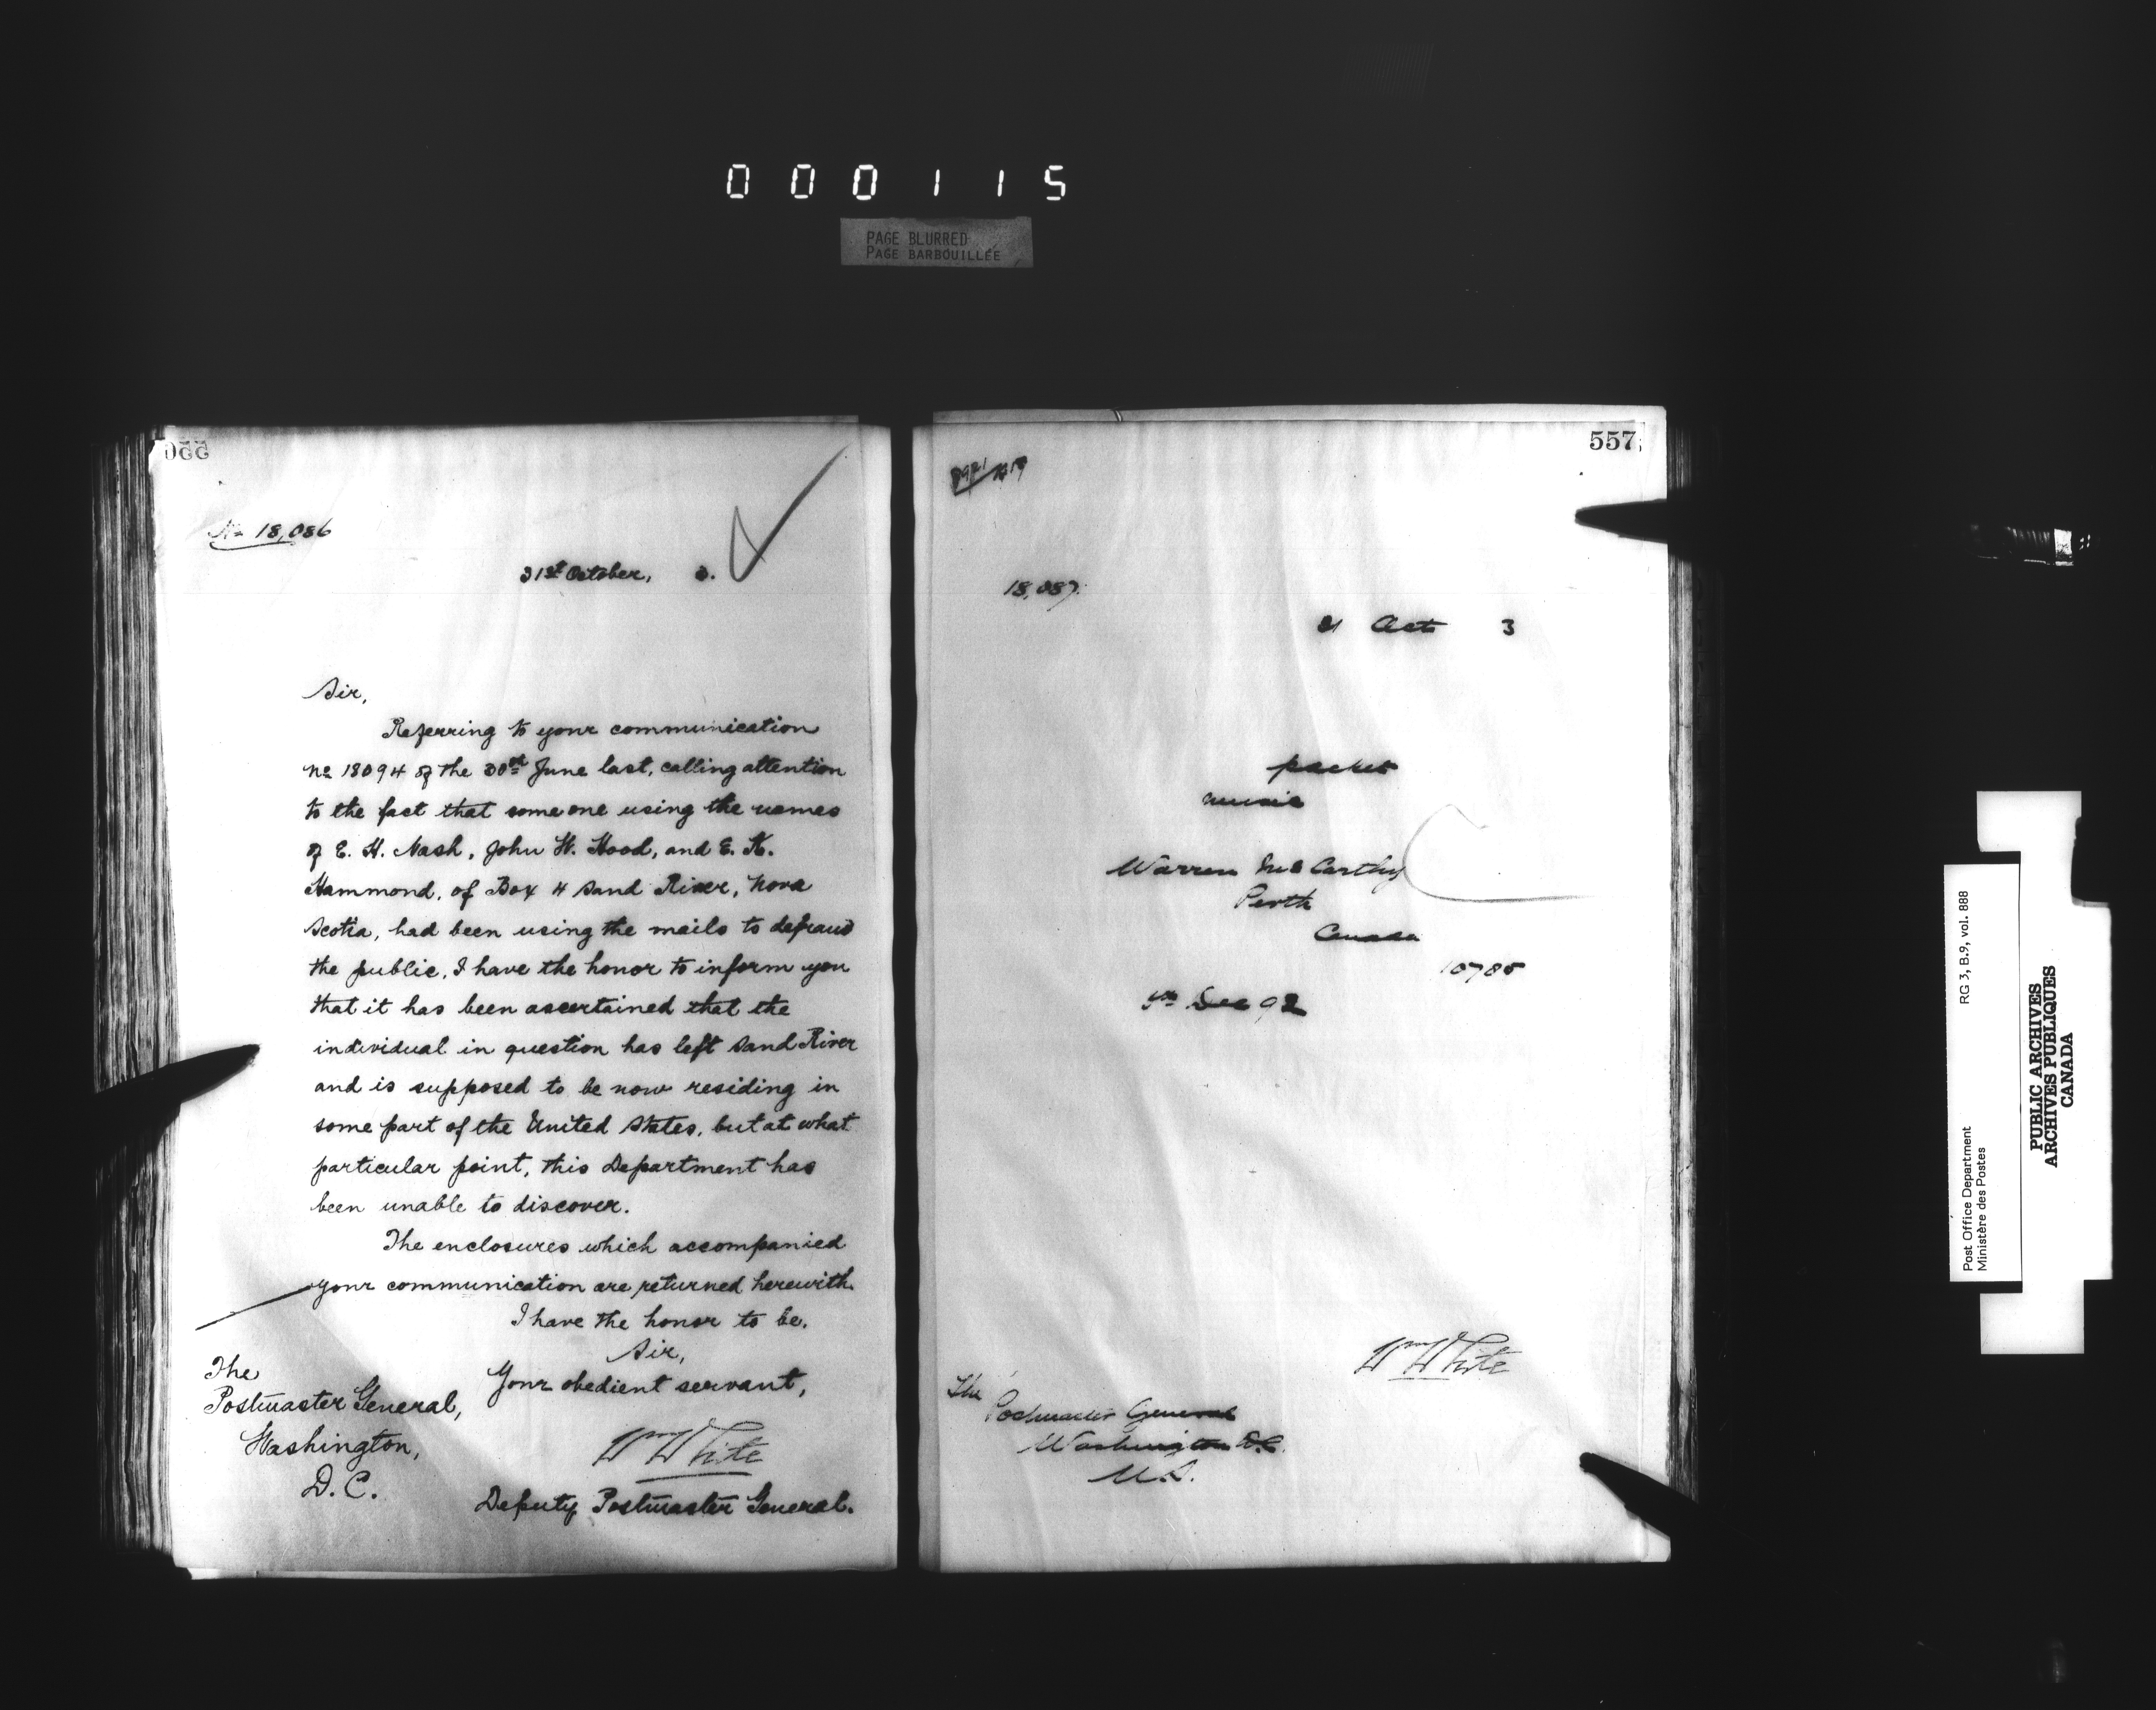 000115
PAGE BLURRED
PAGE BARBOUILLÉE
556
No 18,086
31st October, 3.
Sir,
Referring to your communication
No 18094 of the 30th June last, calling attention
to the fact that some one using the names
of E. H. Nash, John W. Hood, and E. K.
Hammond, of Box 4 Sand River, Nova
Scotia, had been using the mails to defraud
the public, I have the honor to inform you
that it has been ascertained that the
individual in question has left Sand River
and is supposed to be now residing in
some part of the United States, but at what
particular point, this Department has
been unable to discover.
The enclosures which accompanied
your communication are returned herewith.
I have the honor to be,
Sir,
Your obedient servant,
Wm White
Deputy Postmaster General.
The
Postmaster General,
Washington,
D.C.
557
18,087
31 Oct 3
packet
music
Warren McCarthy
Perth
Canada
10785
Dec 92
Wm White
The
Postmaster General
Washington D.C.
U.S.
Post Office Department
Ministère des Postes
RG 3, B.9, vol. 888
PUBLIC ARCHIVES
ARCHIVES PUBLIQUES
CANADA